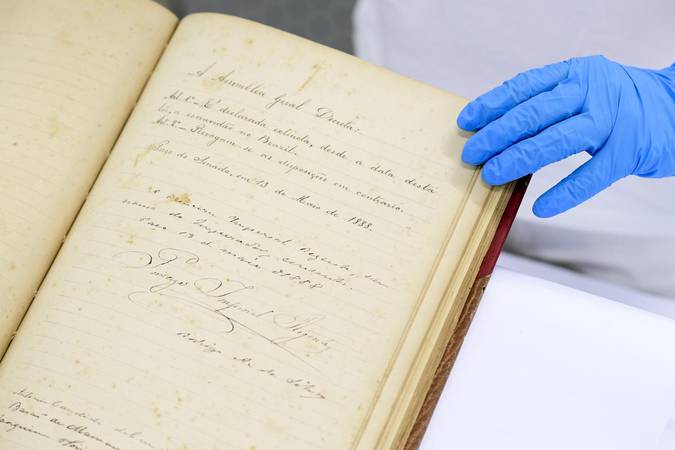 A Assemblea Geral Decreta:
Art. 1º - É declarada extincta, desde a data desta
lei, a escravidão no Brazil.
Art. 2º - Revogam-se as disposições em contrario.
Paço do Senado, em 13 de Maio de 1888.
A Princeza Imperial Regente, em
nome do Imperador,
Paço 13 de maio 1888
Princeza Imperial Regente
Rodrigo A. da Silva
Antonio Candido
Barão de